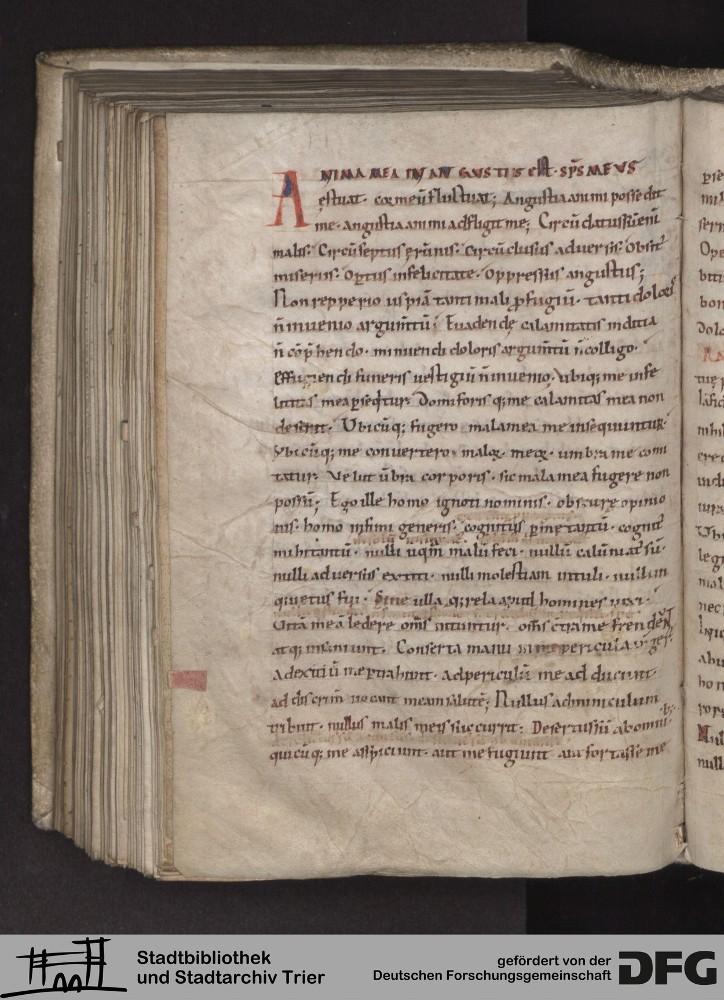 ANIMA MEA IN ANGUSTIIS EST. SPS MEUS
ęstuat. cor meū fluctuat; Angustia animi posse dit
me. angustia animi adfligit me; Circūdatus sū enī
malis. Circūseptus erūnis. circūclusus adversis. Obsit᷒
miseriis. Op̄tus infelicitate. Oppressus angustiis;
Non repperio uspiā tanti mali ꝓfugiū. tanti dolorē
n̄ invenio argum̄tū; Evadendę calamitatis indicia
n̄ cōp̄hendo. minuendi doloris argum̄tū n̄ colligo.
Effugiendi funeris vestigiū n̄ invenio. Ubiq; me infe
licitas mea ꝑseq̄tur. Domi foris q; me calamitas mea non
deserit. Ubicūq; fugero mala mea me insequuntur.
Ubicūq; me convertero. malorꝫ meorꝫ umbra me comi
tatur. Velut ūbra corporis. sic mala mea fugere non
possū; Ego ille homo ignoti nominis. obscurę opinio
nis. homo infimi generis. cognitus ꝑ me tantū. cognit᷒
mihi tantū. nulli uq̄m malū feci. nullū calūniat᷒ sū.
nulli adversus extiti. nulli molestiam intuli. nulli in
quietus fui. Sine ulla q;rela apud homines vixi.
Uitā meā lędere om̄s nituntur. om̄s ctra me frendent
atq; insaniunt. Conserta manu in me pericula
ad exitiū me ꝑtrahunt. ad periculū me adducunt.
ad discrim̄ vocant meam salutē; Nullus adminiculum
tribuit. nullus malis meis succurrit. Desertus sū ab omnib;
quicūq; me aspiciunt. aut me fugiunt. aut fortasse me
Stadtbibliothek
und Stadtarchiv Trier
gefördert von der
Deutschen Forschungsgemeinschaft
DFG